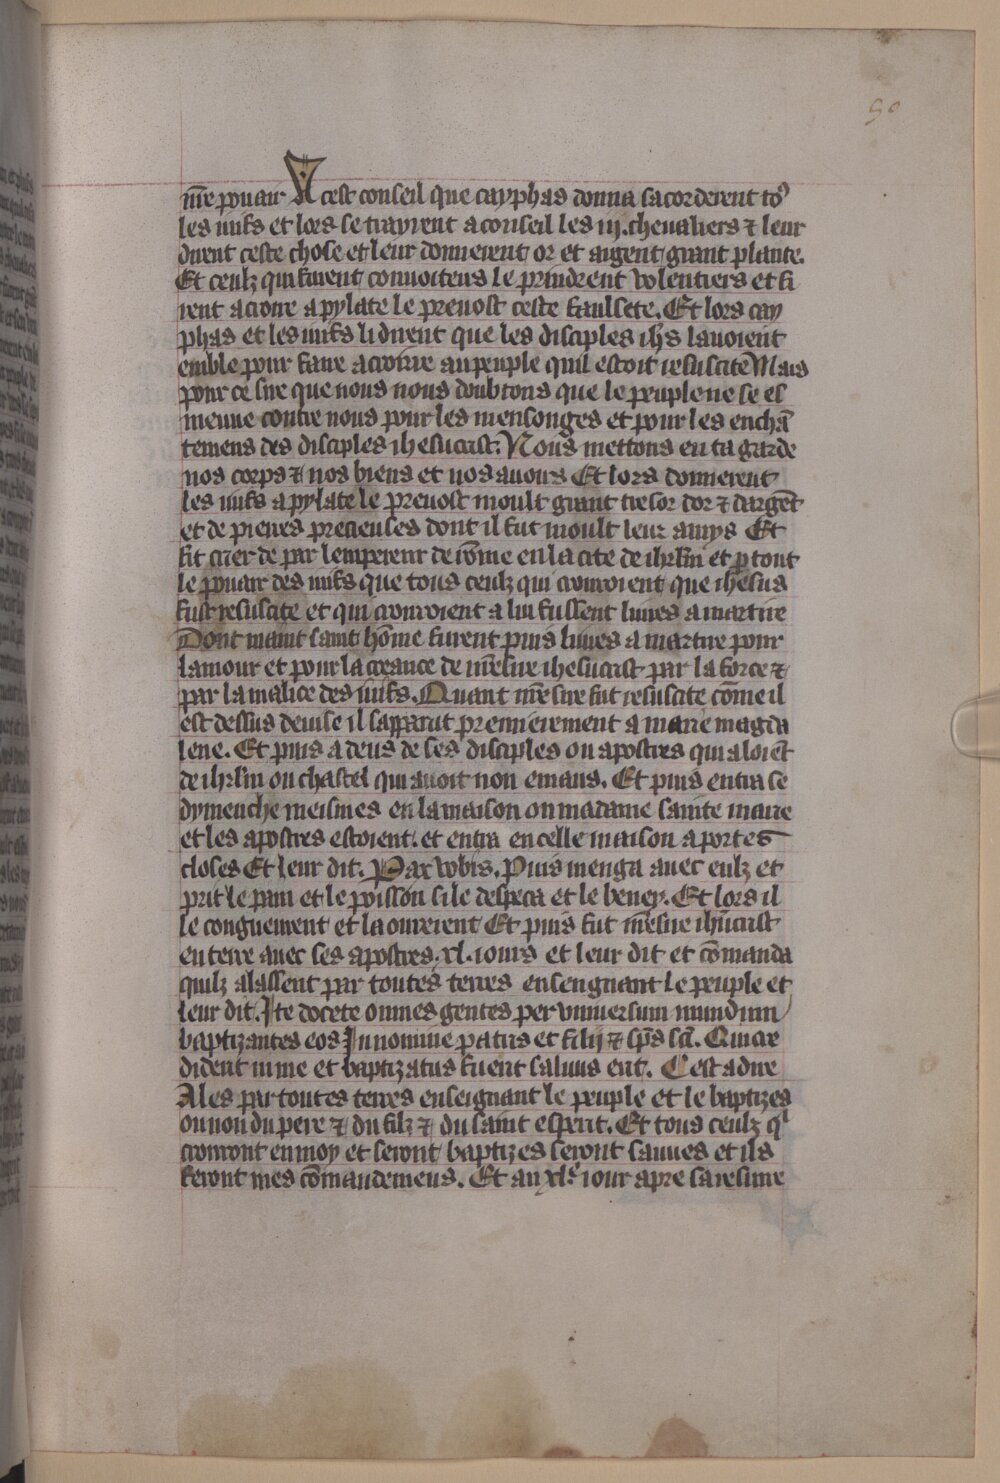 50
nr̄e pouair A cest conseil que cayphas donna sacorderent toꝰ
les iuifs et lors se trayrent a conseil les iij. cheualiers ⁊ leur
dirent ceste chose et leur donnerent or et argent grant plante.
Et ceulz qui furent conuoiteus le prindrent volentiers et fi
rent acroire a pylate le preuost ceste faulsete. Et lors cay
phas et les iuifs li dirent que les disciples ihs̄ lauoient
emble pour faire acroirre au peuple quil estoit resuscite Mais
pour ce sire que nous nous doubtons que le peuple ne se es
meuue contre nous pour les mensonges et pour les enchā
temens des disciples ihesucrist. Nous mettons en ta garde
nos corps ⁊ nos biens et nos auoirs Et lors donnerent
les iuifs a pylate le preuost moult grant tresor dor ⁊ dargēt
et de pierres precieuses dont il fut moult leur amys Et
fit crier de par lempereur de rōme en la cite de ihrl̄m et ꝑ tout
le pouair des iuifs que tous ceulz qui croiroient que ihesus
fust resuscite et qui croiroient a lui fussent liures a martire
Dont maint saint hōme furent puis liures a martire pour
lamour et pour la creance de nr̄e sire ihesucrist par la force ⁊
par la malice des iuifs. Quant nr̄e sire fut resuscite cōme il
est dessus deuise il sapparut premierement a marie magda
lene. Et puis a deus de ses disciples ou apostres qui aloiēt
de ihrl̄m ou chastel qui auoit non emaus. Et puis entra se
dymenche meismes en la maison ou madame sainte marie
et les apostres estoient. et entra en celle maison a portes
closes Et leur dit. Pax vobis. Puis menga auec eulz et
prit le pain et le poisson si le despeca et le beney. Et lors il
le congneurent et laourerent Et puis fut nr̄e sire ihūcrist
en terre auec ses apostres .xl. iours et leur dit et cōmanda
quilz alassent par toutes terres ensengnant le peuple et
leur dit. Ite docete omnes gentes per vniuersum mundum
baptizantes eos In nomine patris et filij ⁊ sp̄s sc̄i. Qui cre
dident in me et baptizatus fuerit saluus erit. Cest a dire
Ales par toutes terres enseignant le peuple et le baptizes
ou non du pere ⁊ du filz ⁊ du saint esperit. Et tous ceulz qͥ
croiront en moy et seront baptizes seront sauues et ils
feront mes cōmandemens. Et au xlᵉ iour apre sa resurre